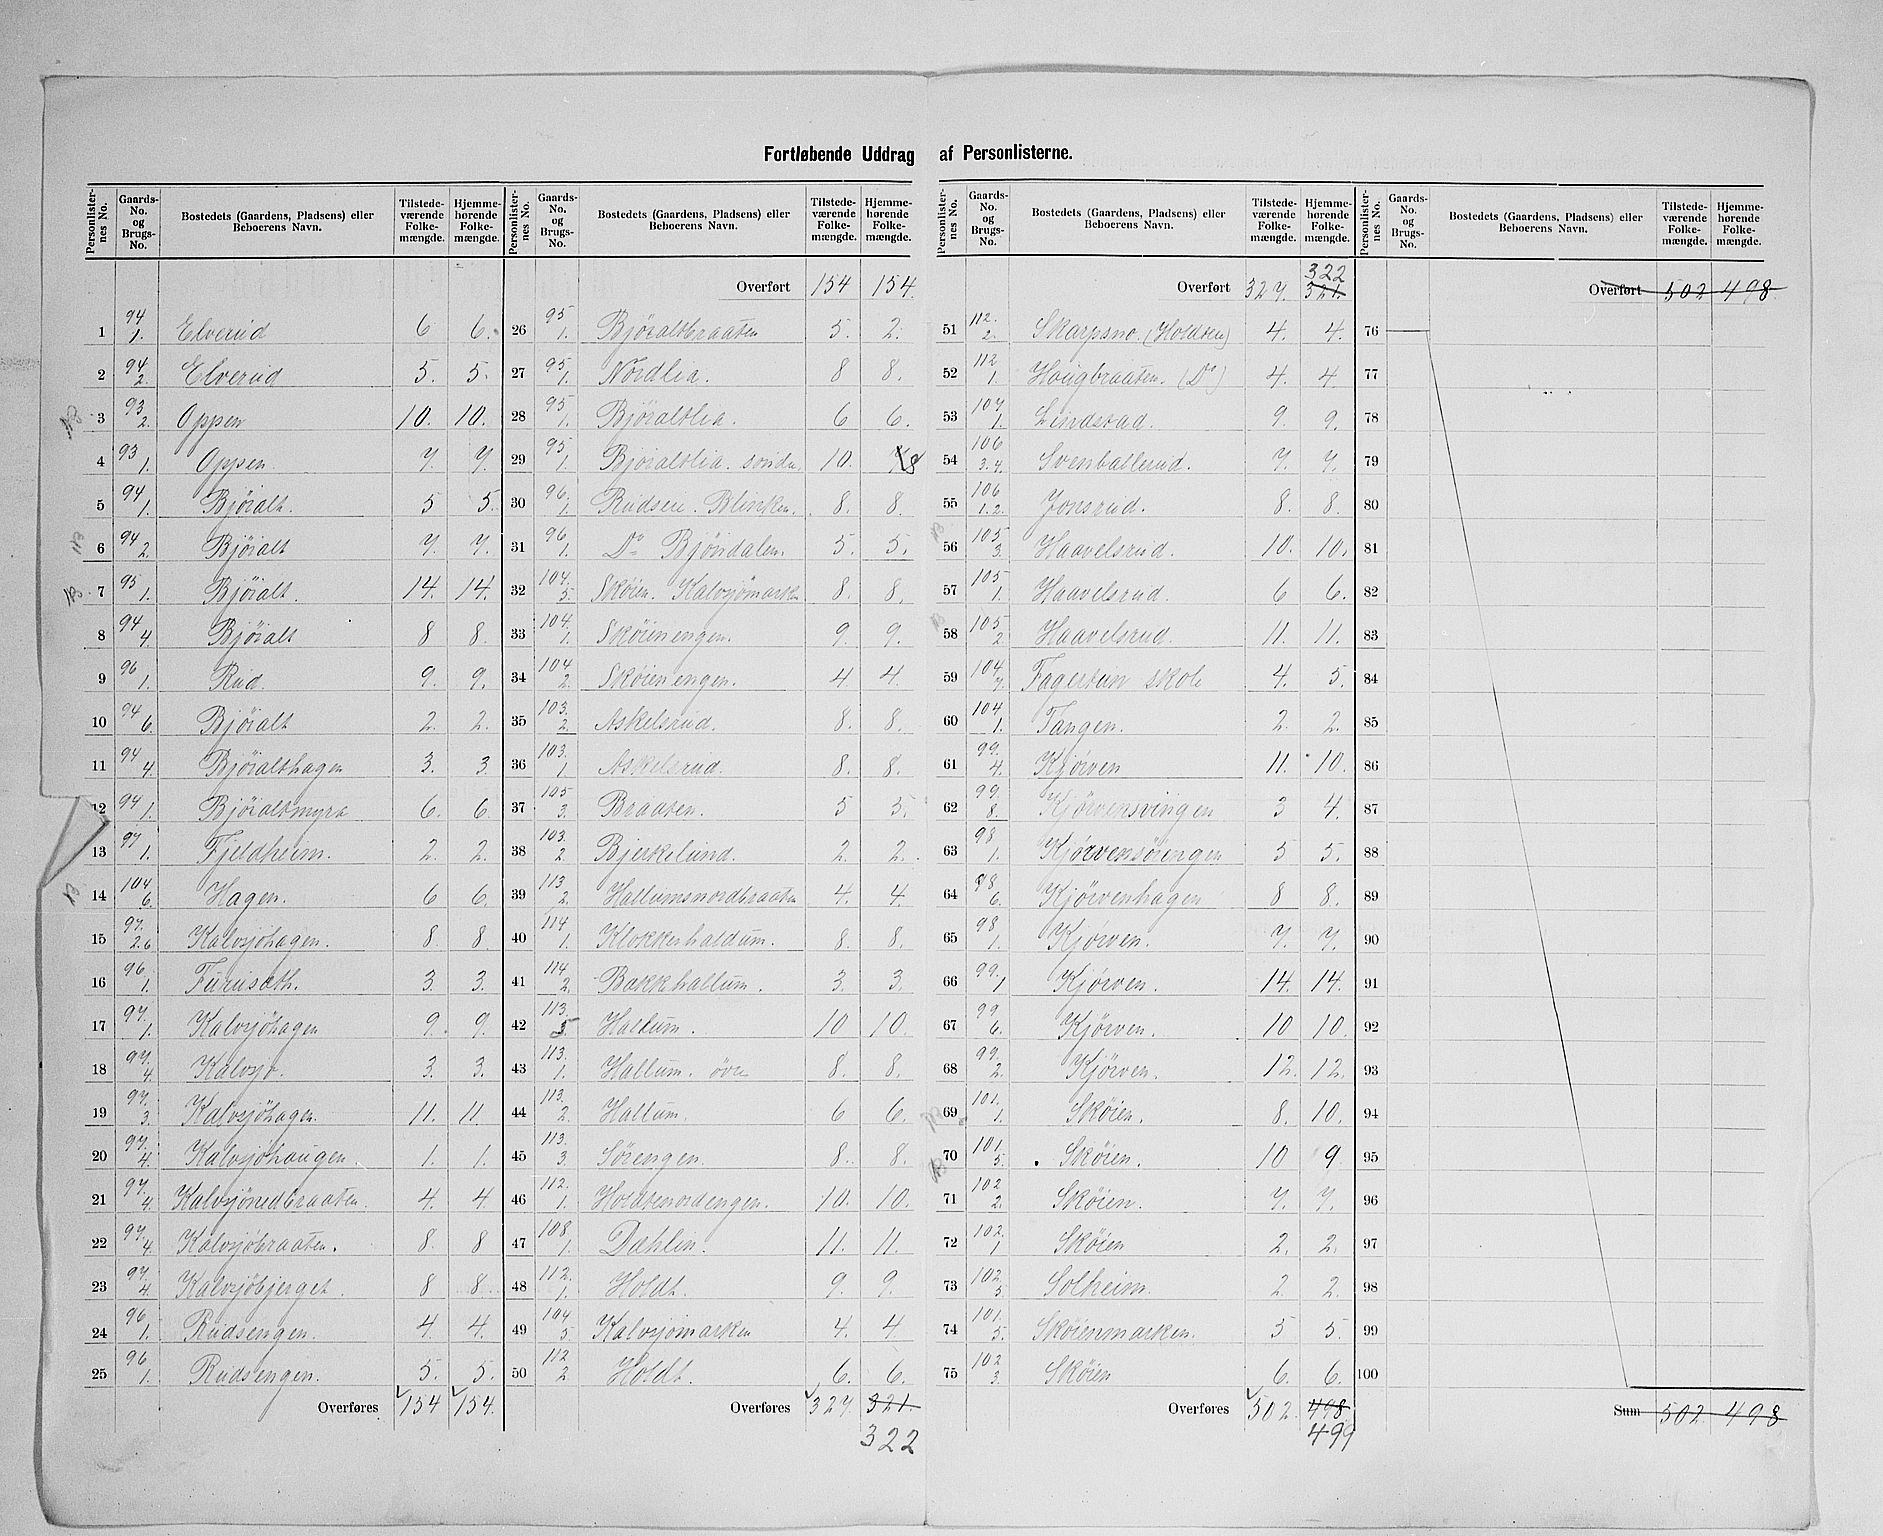 Fortløbende Uddrag af Personlisterne.
Personlister-nes No. | Gaards-No. og Brugs-No. | Bostedets (Gaardens, Pladsens) eller Beboerens Navn. | Tilstede-værende Folke-mængde. | Hjemme-hørende Folke-mængde.
1 94/1. Elverud 6 6.
2 94/2. Elverud 5. 5.
3 93/2. Oppen 10. 10.
4 93/1. Oppen 7. 7.
5 94/1. Björalt. 5 5.
6 94/2. Björalt 7. 7.
7 95/1. Björalt. 14. 14.
8 94/4. Björalt 8 8.
9 96/1. Rud. 9. 9.
10 94/6. Björalt 2. 2.
11 94/4. Björalthagen 3. 3.
12 94/1. Björaltmyra 6. 6.
13 97/1. Fjeldheim. 2. 2.
14 104/6. Hagen. 6 6.
15 97./2.6 Kalvsjöhagen. 8. 8.
16 96./1. Furusæth. 3. 3.
17 97./1. Kalvsjöhagen 9. 9.
18 97./4. Kalvsjö. 3. 3.
19 97./3. Kalvsjöhagen. 11. 11.
20 97./4. Kalvsjöhaugen 1. 1.
21 97./4. Kalvsjönedbraaten. 4. 4.
22 97./4. Kalvsjöbraaten. 8. 8
23 97./4. Kalvsjöbjerget. 8 8.
24 96./1. Rudsengen. 4. 4.
25 96/1. Rudsengen. 5. 5.
Overføres 154 154.
Personlister-nes No. | Gaards-No. og Brugs-No. | Bostedets (Gaardens, Pladsens) eller Beboerens Navn. | Tilstede-værende Folke-mængde. | Hjemme-hørende Folke-mængde.
Overført 154 154.
26 95/1. Björaltbraaten 5. 2.
27 95/1. Nordlia. 8 8.
28 95/1. Björaltlia. 6 6.
29 95/1. Björaltlia. söndre 10. 8
30 96./1. Rudseie. Blinken. 8. 8.
31 96/1. Do Bjöndalen. 5. 5.
32 104./5. Sköien. Kalvsjömarken 8. 8.
33 104./1. Sköienengen. 9. 9.
34 104/2. Sköienengen. 4 4.
35 103./2. Askelsrud. 8. 8.
36 103./1. Askelsrud. 8. 8.
37 105/3. Braaten. 5 5.
38 103./2 Bjerkelund. 2. 2.
39 113/2. Hallumsnordbraaten 4. 4.
40 114./1. Klokkerhaldum. 8. 8.
41 114/2. Bakkhallum. 3. 3.
42 113./5 Hallum. 10 10.
43 113./1. Hallum. övre 8. 8.
44 113./2. Hallum. 6 6.
45 113./3. Sörengen. 8. 8.
46 112./1. Holdtnordengen. 10. 10.
47 108./1. Dahlen. 11. 11.
48 112./1. Holdt. 9 9.
49 104/5 Kalvsjömarken 4. 4
50 112/2 Holdt. 6. 6.
Overføres 327. 321.
322
Personlister-nes No. | Gaards-No. og Brugs-No. | Bostedets (Gaardens, Pladsens) eller Beboerens Navn. | Tilstede-værende Folke-mængde. | Hjemme-hørende Folke-mængde.
322
Overført 327. 321.
51 112./2. Skarpsno. (Holdten) 4. 4.
52 112/1. Hougbraaten. (Do) 4. 4.
53 107/1. Lindstad. 9. 9.
54 106/3.4. Svenballerud. 7. 7.
55 106/1.2. Jonsrud. 8. 8.
56 105/3. Haavelsrud. 10. 10.
57 105/1. Haavelsrud. 6 6.
58 105/2 Haavelsrud. 11. 11.
59 104./7. Fagertun skole 4. 5.
60 104/1. Tangen. 2. 2.
61 99./4. Kjörven 11. 10.
62 99./8. Kjörvensvingen 3 4.
63 98/1. Kjörvensörengen 5 5.
64 98/6. Kjörvenhagen 8 8.
65 98/1. Kjörven. 7. 7.
66 99./1 Kjörven. 14. 14.
67 99/6. Kjörven. 10 10.
68 99./2. Kjörven. 12. 12.
69 101./1. Sköien. 8. 10.
70 101./5. Sköien. 10 9.
71 102/2. Sköien. 7. 7.
72 102./1 Sköien 2. 2.
73 102./5 Solheim. 2. 2.
74 101./5. Sköienmarken. 5 5.
75 102/3. Sköien 6. 6.
Overføres 502. 498.
499
Personlister-nes No. | Gaards-No. og Brugs-No. | Bostedets (Gaardens, Pladsens) eller Beboerens Navn. | Tilstede-værende Folke-mængde. | Hjemme-hørende Folke-mængde.
Overført 502 498
76
77
78
79
80
81
82
83
84
85
86
87
88
89
90
91
92
93
94
95
96
97
98
99
100
Sum 502 498